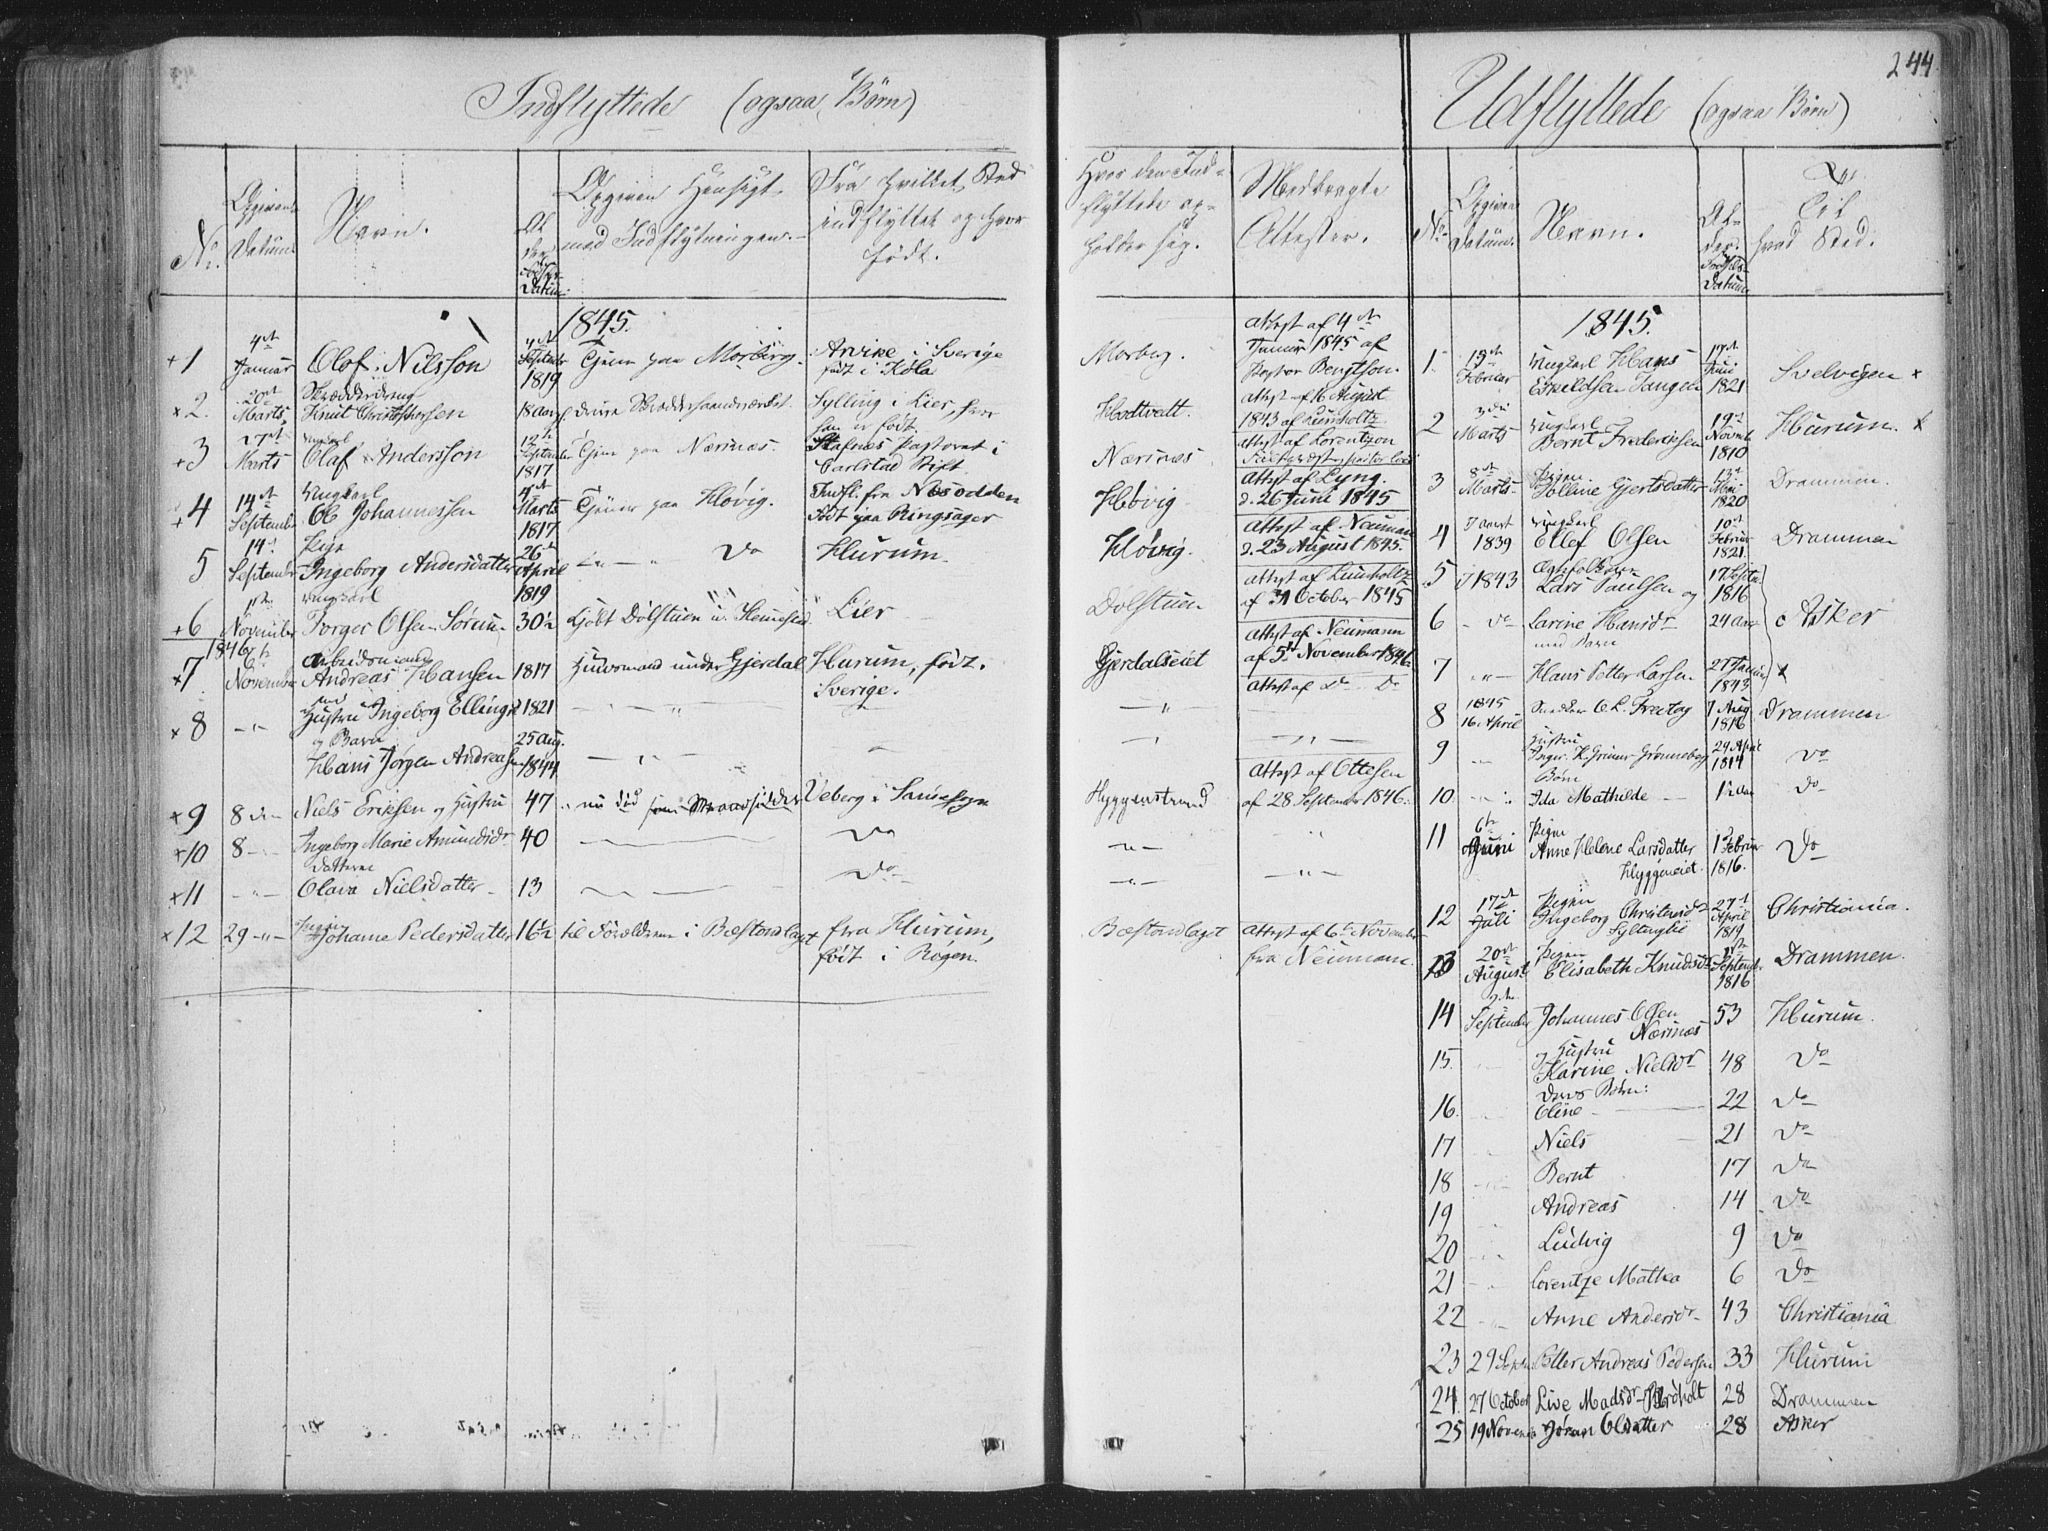 244
Indflyttede (ogsaa Børn)
No. Opgivens Datum. Navn. Alder. Fødsels-Datum. Opgiven Hensigt med Indflytningen. Fra hvilket Sted indflyttet og hvor født. Hvor den Indflyttede opholder sig. Medbragte Attester.
1845.
+1 4de Januar Olof Nilsson September 1819 Tjene paa Morberg. Arvike i Sverige født i Köla Morberg. Attest af 4de Januar 1845 af Pastor Bengtson.
×2. 20de Marts Skrædderdreng Knut Christophersen 18 aar drive Skrædderhaandværket. Sylling i Lier, hvor han er født. Attest af 16 August 1843 af Lumholtz
+3 27de Marts Ungkarl Olaf Andersson 12te September 1817 Tjene paa Nærsnæs. Pastorat i Carlstad Stift. Nærsnæs Attest af Lorentzon
+4 14de September Ungkarl Ole Johannessen Marts 1817 Tjener paa Høvig. Indfl. fra Nesodden Født paa Ringsager Høvig Attest af Lyng. d. 26 Juni 1845
5 14de September Pige Ingeborg Andersdatter 26de April 1819 Do Hurum. Høvig. Attest af Neumann d. 23 August 1845.
+6 November Ungkarl Torger Olsen Sørum 30½ kjøbt Dølstuen Lier Dølstuen Attest af Lumholtz af 31 October 1845
1846
×7 6te November Arbeidsmand Andreas Hansen 1817 Huusmand under Gjerdal Hurum, født. Sverige. Gjerdalseiet Attest af Neumann af 5te November 1846.
×8 Hustru Ingeborg Ellingsd 1821 Attest af Do Do
og Barn Hans Jørgen Andreasen 25 Aug. 1844
×9 8de Niels Eriksen og Hustru 47 Hyggenstrand Attest af Ottesen af 28 September 1846.
×10 8 Ingeborg Marie Amundsdr 40 Do
×11 Datteren Olava Nielsdatter 13 Do
×12 29 Pigen Johanne Pedersdatter 16½ til Forældrene i Bæstandlaget fra Hurum, født i Røgen. Bæstandlaget Attest af 6te November fra Neumann.
Udflyttede (ogsaa Børn)
No. Opgivens Datum. Navn. Alder. Fødsels-Datum Til hvad Sted.
1845.
1. 15de Februar Ungkarl Hans Eskeldsen Tangen 17de Juni 1821 Svelvigen ×
2 3die Marts Ungkarl Bernt Frederiksen 19de Novemb 1810 Hurum. ×
3 8de Marts Pigen Olline Gjertsdatter 13de Mai 1820 Drammen.
4 1839 Ungkarl Ellef Olsen 10de Februar 1821. Drammen
5 1843 Ægtefolkene Lars Paulsen og 17 Septbr 1816
6 Do Larine Hansdr 24 Aar Asker
med Barn
7 Hans Petter Larsen 27 Januar 1843 ×
8 1845 16 April Snedker C. L. Freitag 1 Aug 1816 Drammen
9 Hustru Grønneberg 29 April 1814 Do
Børn
10 Ida Mathilde 1½ Aar Do
11 6te Juni Pigen Anne Helene Larsdatter Hyggeneiet. 1 Februar 1816. Do
12 17de Juli Pigen Ingeborg Christensd 27de April 1819 Christiania.
13 20de August Pigen Elisabeth Knudsd September 1816 Drammen.
14 September Johannes Olsen Nærsnæs 53 Hurum.
15. og Hustru Karine Nielsdr 48 Do
Deres Børn:
16. Oline 22 Do
17 Niels 21 Do
18 Bernt 17 Do
19 Andreas 14 Do
20 Ludvig 9 Do
21 Lorentze Mathea 6 Do
22 Anne Andersdr 43 Christiania
23 29 Septbr Petter Andreas Pedersen 33 Hurum
24. 27 October Live Madsdr 28 Drammen
25 19 Novemb Jøran Olsdatter 28 Asker